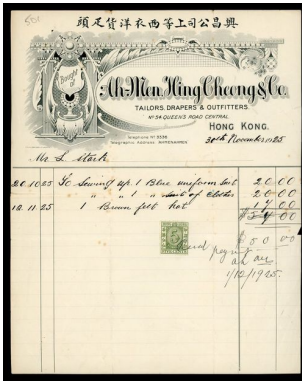 501
興昌公司上等西衣洋貨足頭
Bought of
Ah-Men, Hing Cheong & Co.
TAILORS, DRAPERS & OUTFITTERS.
No 54 QUEEN'S ROAD CENTRAL
HONG KONG.
Telephone No 3536
Telegraphic Address "AHMENAMEN"
30th November 1925
Mr. L. Stark
20.10.25 To Sewing up 1 Blue uniform Suit 20.00
" " 1 " Suit of Clothes 20.00
12.11.25 1 Brown felt hat 17.00
1/12/1925.